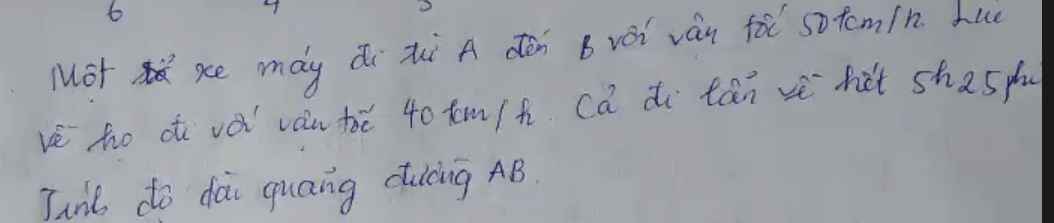 6 4 5
Một xe máy đi từ A đến B với vận tốc 50 km/h. Lúc
về họ đi với vận tốc 40 km/h. Cả đi lẫn về hết 5h25 phú
Tính độ dài quãng đường AB.